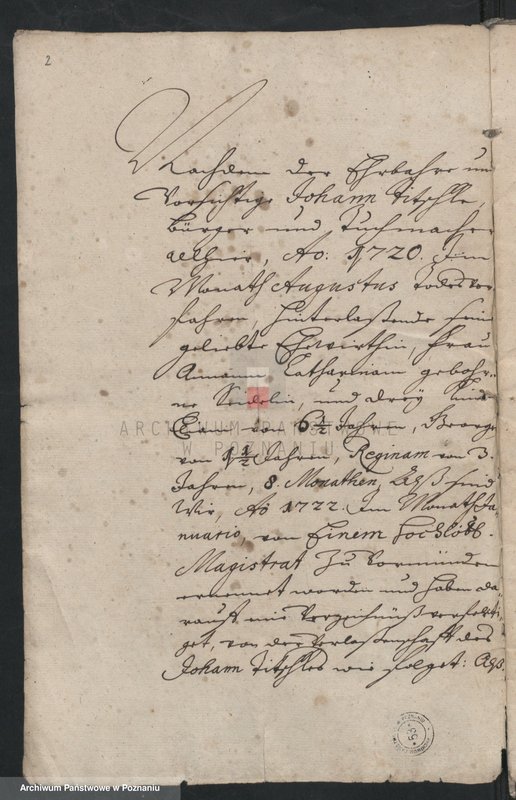 2
Nachdem der Ehrbahre und
Vorsichtige Johann Titschle,
Bürger und Tuchmacher
allhier, Ao. 1720. im
Monath Augustus todes ver
fahren, hinterlaßende seine
geliebte Ehewirthin, Frau
Catharinam gebohr¬
ne Seidelin, und drey Kinder
von 6 1/2 Jahren, George
von 1 1/2 Jahren, Reginam von 3.
Jahren, 8. Monathen, Alß sind
Wir, Ao 1722. Im Monath Ja¬
nuario, von Einem HochLöbl.
Magistrat Zu Vormünden
ernennet worden und haben da¬
rauff ein Verzeichnüß verferti¬
get, von der Verlaßenschafft des
Johann Titschles wie folget: Alß.
ARCHIWUM PAŃSTWOWE
W POZNANIU
53
Archiwum Państwowe w Poznaniu